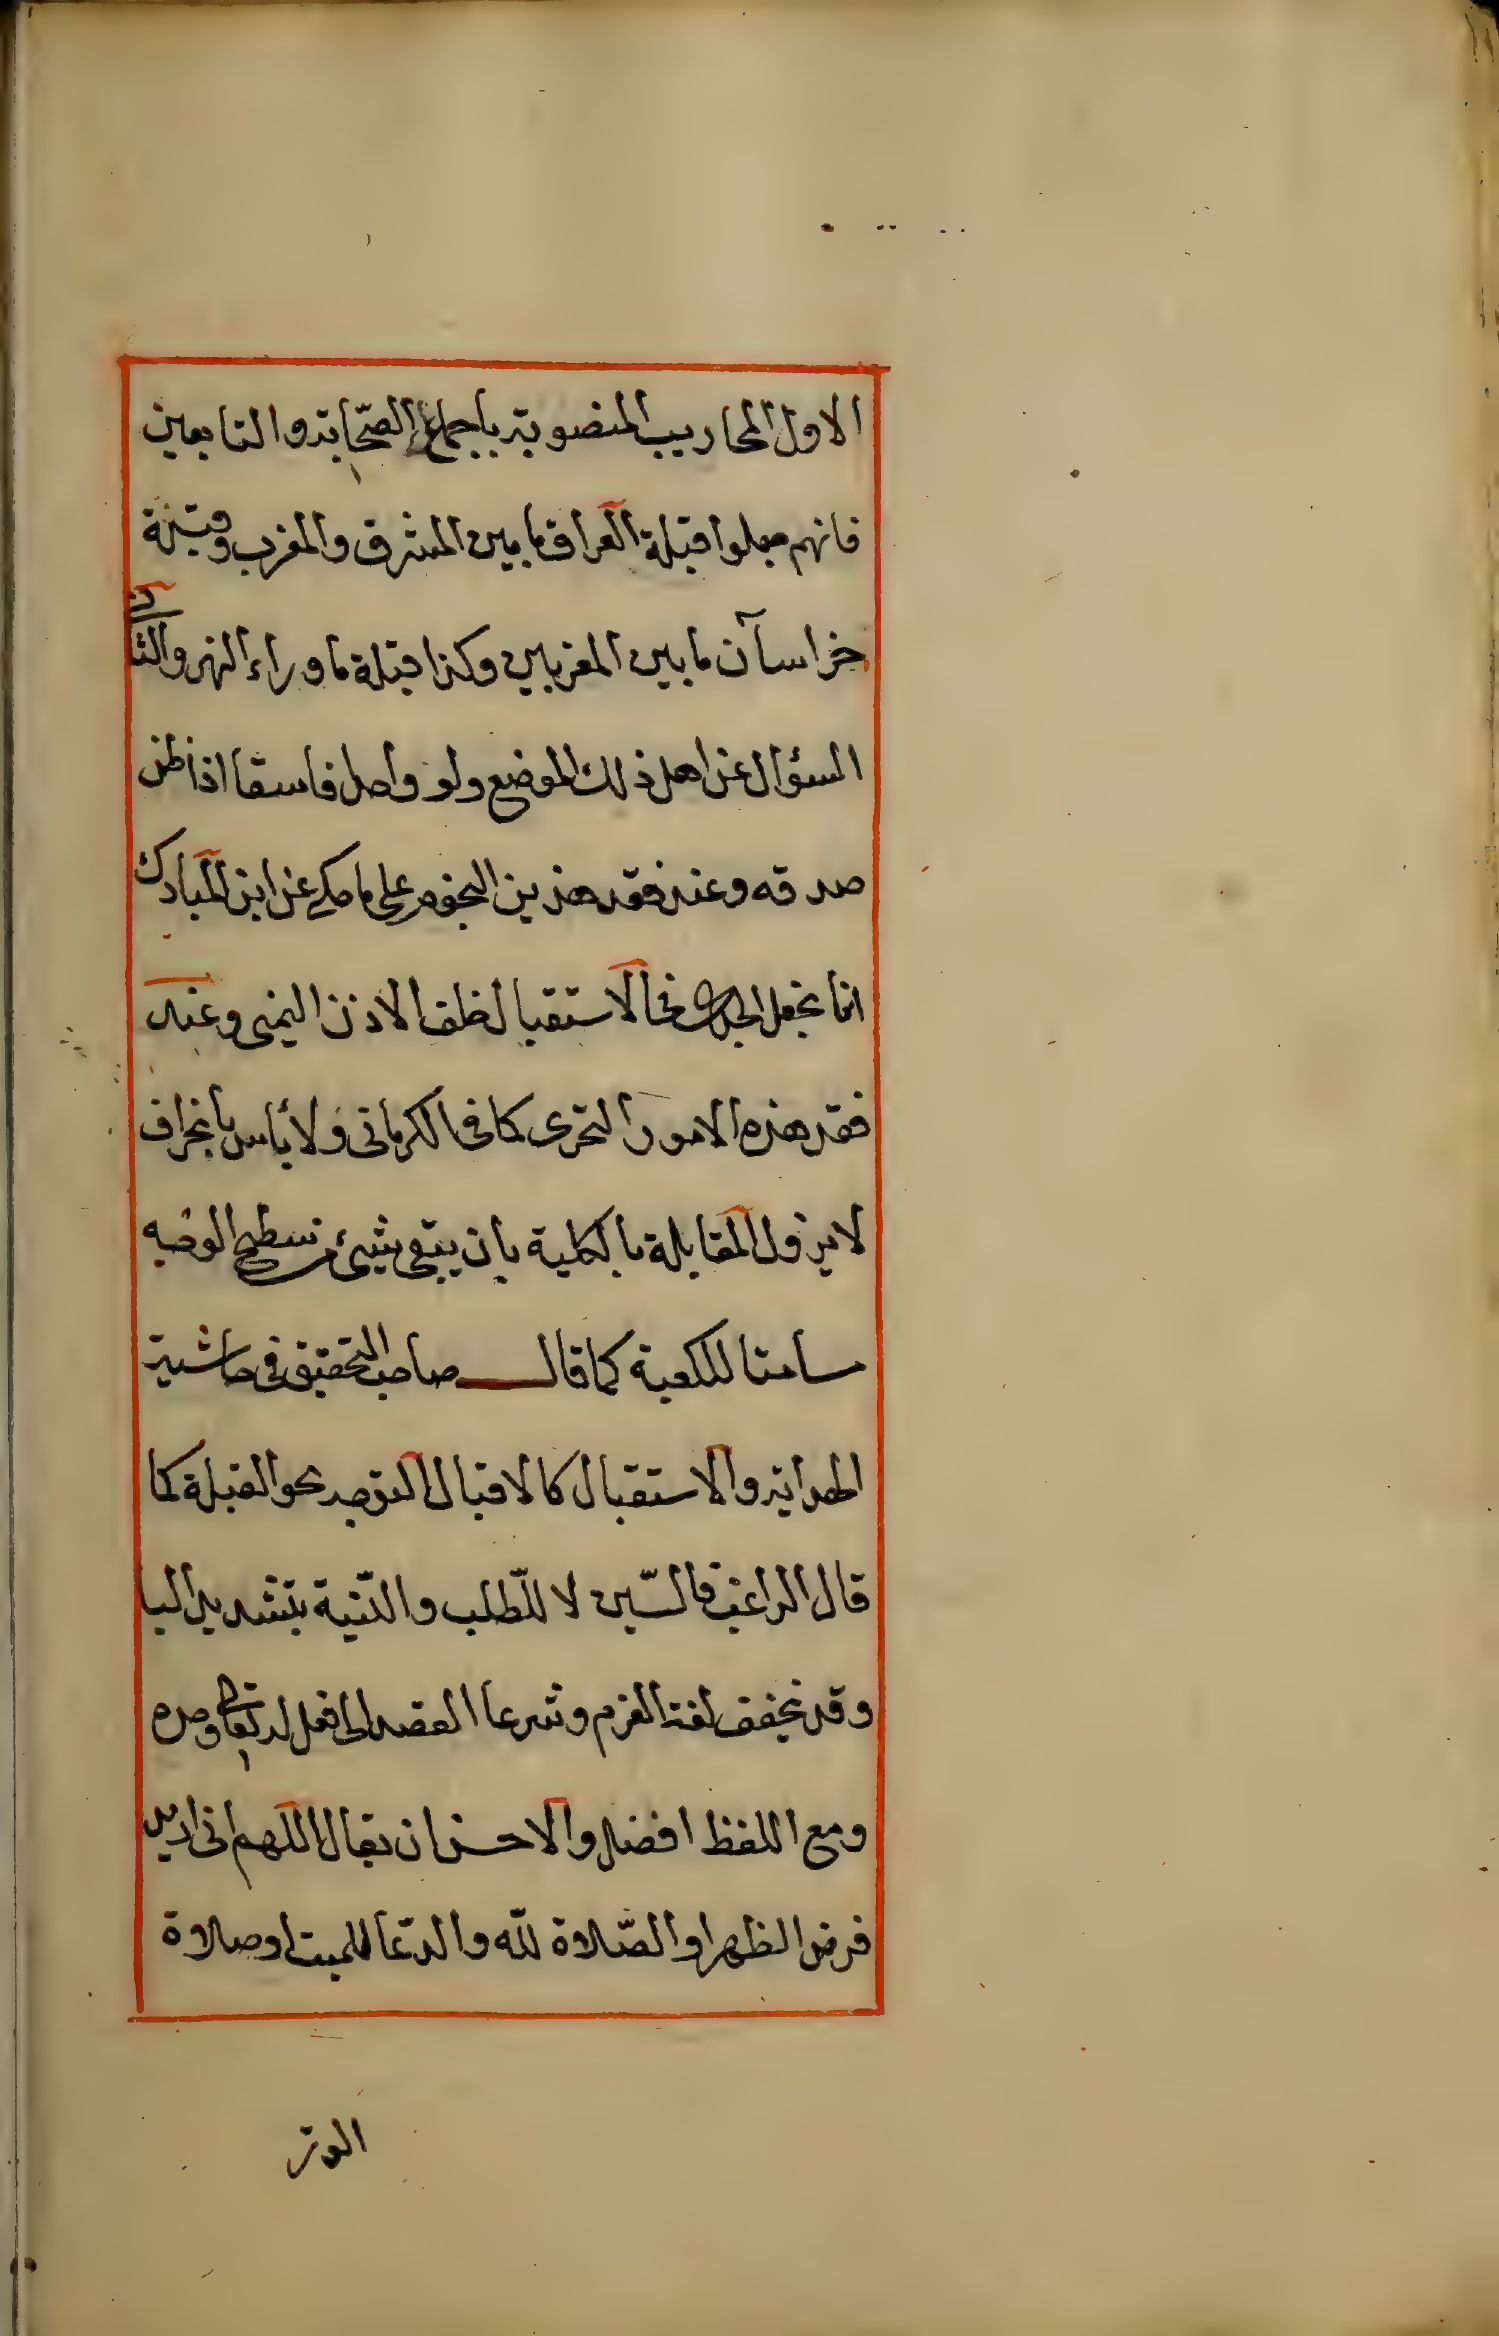 الاول المحاريب المنصوبة باجماع الصّحابة والتابعين
فانهم جعلوا قبلة العراق ما بين المشرق والمغرب وقبلة
خراسآن ما بين المغربين وكذا قبلة ما وراء النهر والثانى
السؤال عن اهل ذلك الموضع ولو واحدا فاسقا اذا ظن
صدقه وعند فقد هذين النجوم على ما حكى عن ابن المبارك
انما نجعل الجدى فى الاستقبال خلف الاذن اليمنى وعند
فقد هذه الامور التحرى كما فى الكرمانى ولا بأس بانحراف
لا يزول المقابلة بالكلية بان يبقى شيئ من سطح الوجه
مسامتا للكعبة كما قال صاحب التحقيق فى حاشية
الهداية والاستقبال كالاقبال التوجه نحو القبلة كما
قال الراغب فالسّين لا للّطلب والنّية بتشديد اليا
وقد تخفف لغة العزم وشرعا القصد الى فعل لله تعالى وحده
ومع اللفظ افضل والاحسن ان يقال اللهم انى اريد
فرض الظهر او الصّلاة لله والدّعا للميت او صلاة
الوتر